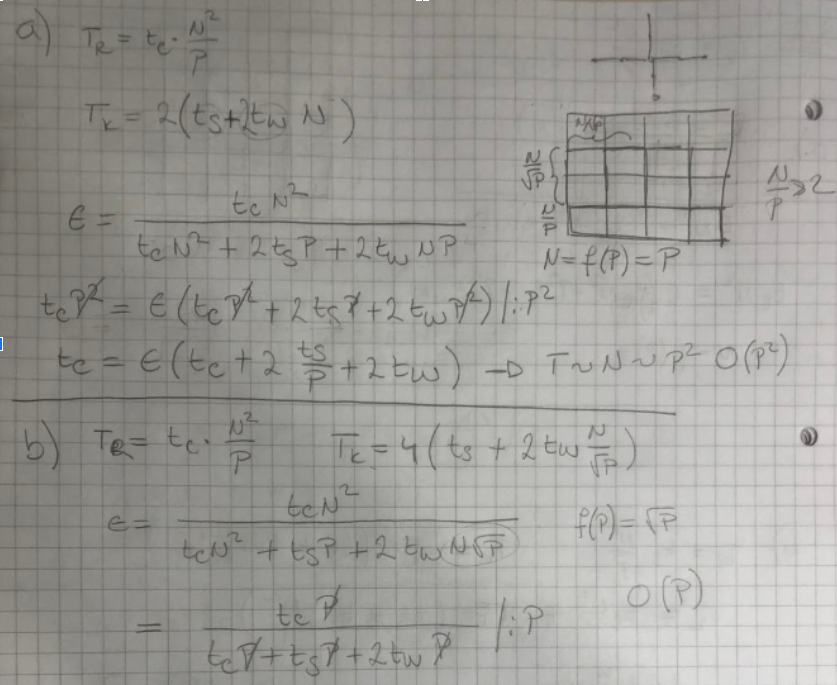 a) T_R = t_c · N²/P
T_K = 2(t_S + 2t_w N)
N/√P
N/P
N/P ≥ 2
N = f(P) = P
ϵ = t_c N² / (t_c N² + 2t_S P + 2t_w NP)
t_c P² = ϵ(t_c P² + 2t_S P + 2t_w P²) /:P²
t_c = ϵ(t_c + 2 t_S/P + 2t_w) → T ~ N ~ P² O(P²)
b) T_R = t_c · N²/P T_K = 4(t_S + 2t_w N/√P)
ϵ = t_c N² / (t_c N² + t_S P + 2t_w N√P) f(P) = √P
O(P)
= t_c P / (t_c P + t_S P + 2t_w P) /:P